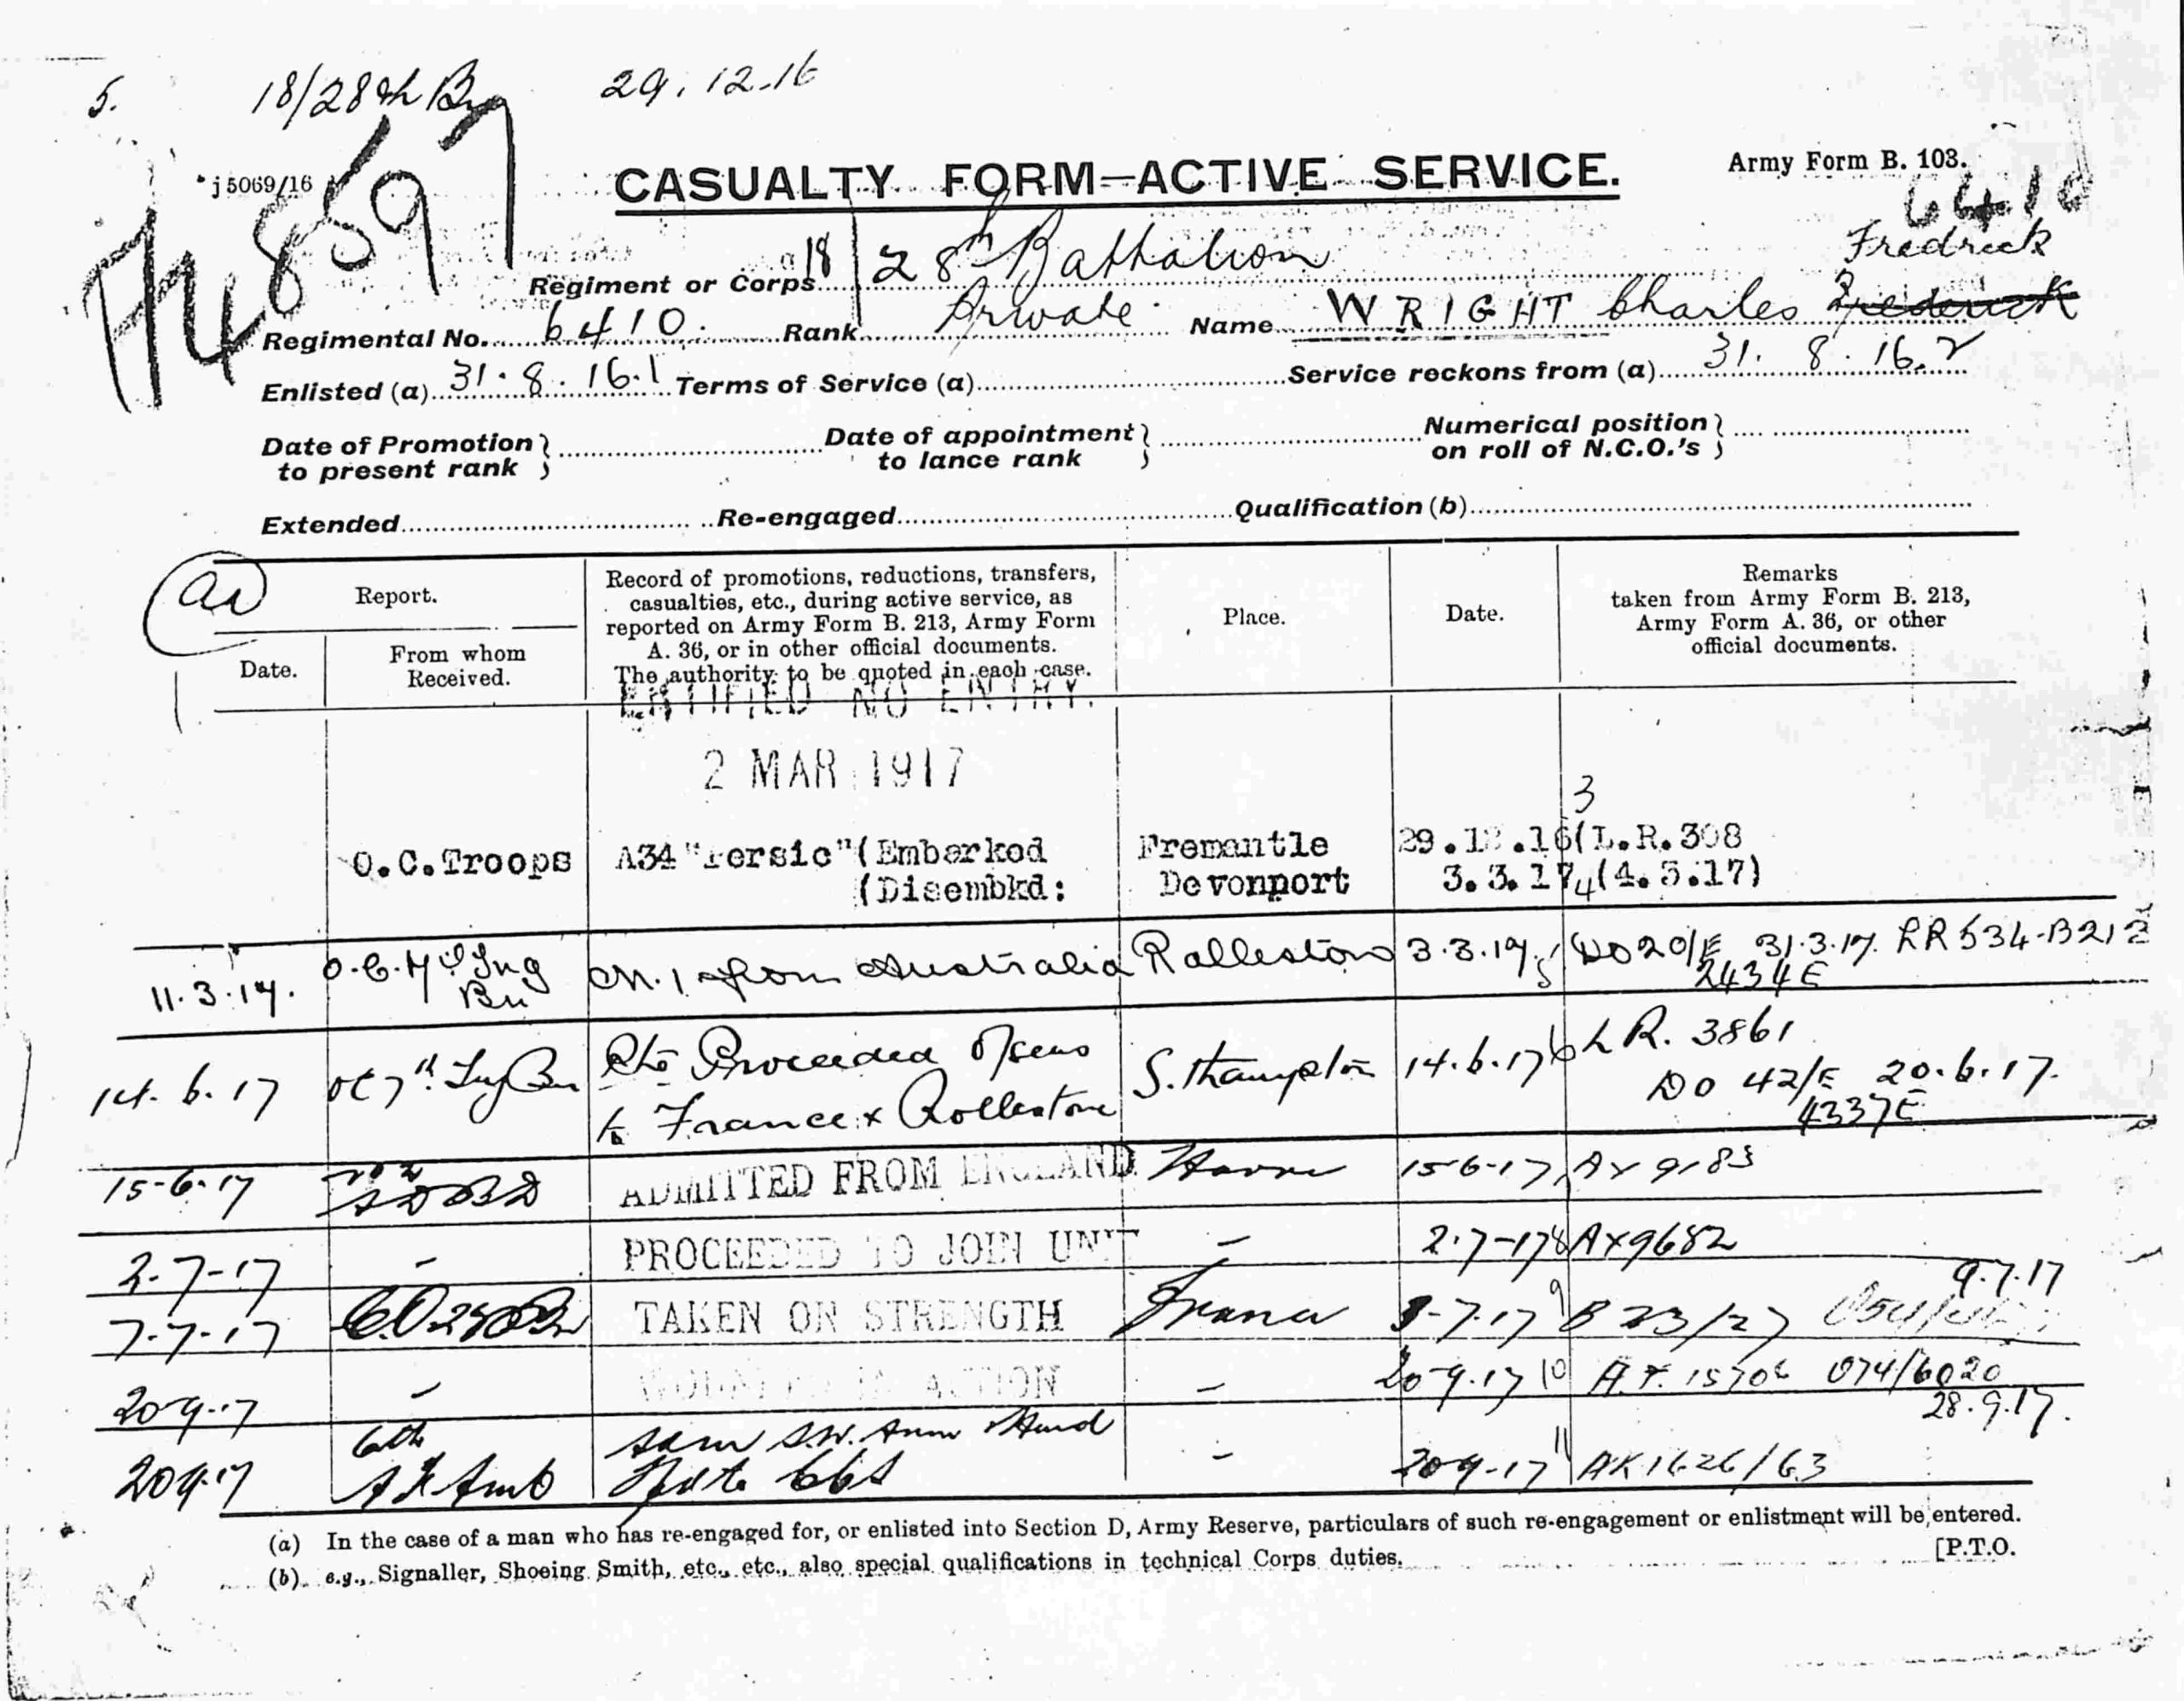 5. 18/28th 29.12.16
*j5069/16
CASUALTY FORM—ACTIVE SERVICE.
Army Form B. 103.
6410
Fredrick
Regiment or Corps 18/28th Battalion
Regimental No. 6410. Rank Private Name WRIGHT Charles Frederick
Enlisted (a) 31.8.16.1 Terms of Service (a) Service reckons from (a) 31.8.16.2
Date of Promotion to present rank } Date of appointment to lance rank } Numerical position on roll of N.C.O.'s }
Extended Re-engaged Qualification (b)
Report.
Date.
From whom Received.
Record of promotions, reductions, transfers,
casualties, etc., during active service, as
reported on Army Form B. 213, Army Form
A. 36, or in other official documents.
The authority to be quoted in each case.
Place.
Date.
Remarks
taken from Army Form B. 213,
Army Form A. 36, or other
official documents.
NO ENTRY.
2 MAR 1917
3
O.C.Troops A34 "Persic" (Embarked Fremantle 29.12.16 (L.R.308
(Disembkd: Devonport 3.3.17 4 (4.5.17)
11.3.17. O.C. 7th Tng Bn from Australia Rollestone 3.3.17 5 DO20/E 31.3.17. RR534-B213
2434E
14.6.17 OC 7th Tng Bn Proceeded O/seas S.thampton 14.6.17 6 L R. 3861
to France x Rollestone DO 42/E 20.6.17.
4337E
15-6-17 ADMITTED FROM ENGLAND Havre 15-6-17 AX 9183
2-7-17 - PROCEEDED TO JOIN UNIT - 2-7-17 8 AX9682
7-7-17 C.O. 28th Bn TAKEN ON STRENGTH France -7.17 9 B 23/27 9.7.17
20-9-17 - WOUNDED IN ACTION - 20-9-17 10 074/6020
28.9.17.
20-9-17 6th A F Amb S.W. Arm Hand - 20-9-17 11 AK1626/63
CCS
(a) In the case of a man who has re-engaged for, or enlisted into Section D, Army Reserve, particulars of such re-engagement or enlistment will be entered.
(b) e.g., Signaller, Shoeing Smith, etc., etc., also special qualifications in technical Corps duties.
[P.T.O.